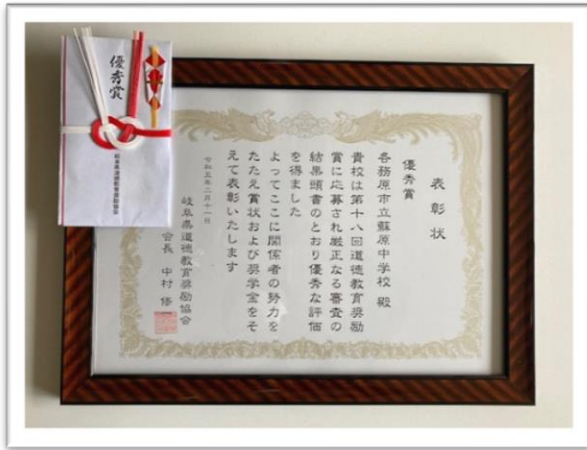 優秀賞
岐阜県道徳教育奨励協会
表彰状
優秀賞
各務原市立蘇原中学校 殿
貴校は第十八回道徳教育奨励
賞に応募され厳正なる審査の
結果頭書のとおり優秀な評価
を得ました
よってここに関係者の努力を
たたえ賞状および奨学金をそ
えて表彰いたします
令和五年二月十一日
岐阜県道徳教育奨励協会
会長 中村 修